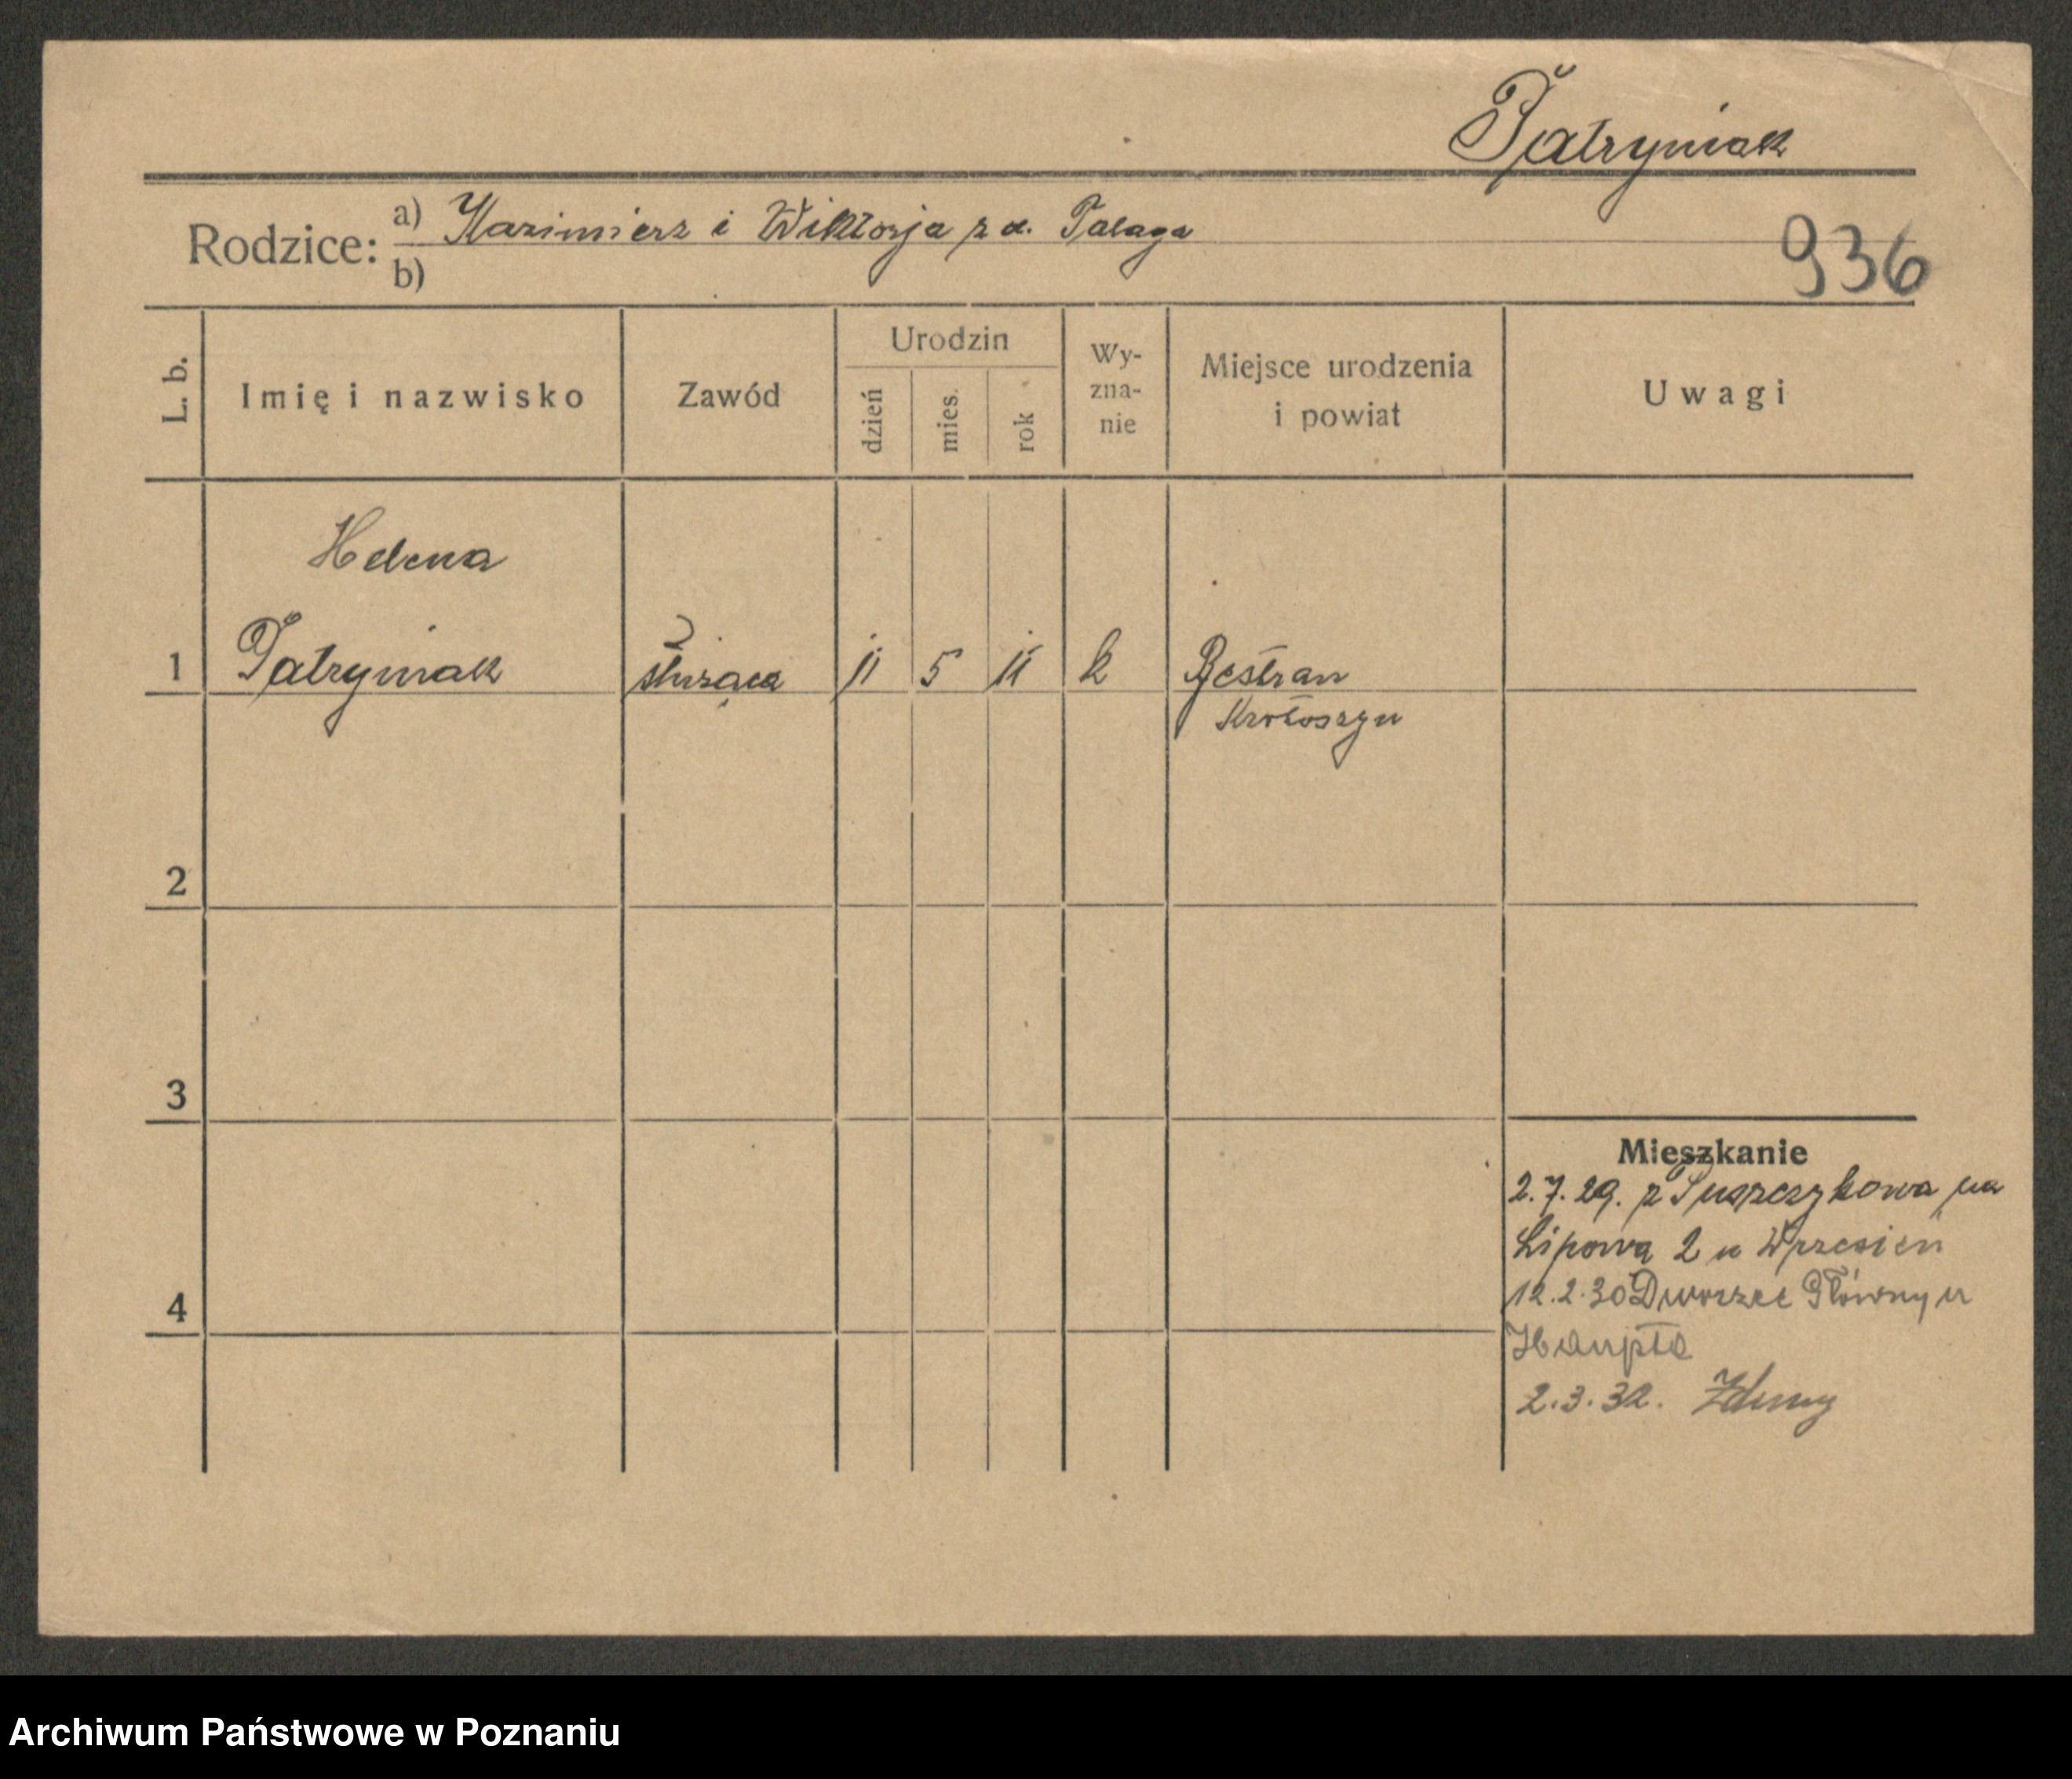 Patryniak
Rodzice: a) Kazimierz i Wiktorja z d. Palaga
b)
936
L. b. Imię i nazwisko Zawód Urodzin dzień mies. rok Wy-zna-nie Miejsce urodzenia i powiat Uwagi
Helena
1 Patryniak służąca 11 5 11 k Bestran
Krotoszyn
2
3
Mieszkanie
2.7.29. z Puszczykowa na
Lipowa 2 u Wrzesień
4 12.2.30 Dworzec Główny u
Haupta
2.3.32. Zduny
Archiwum Państwowe w Poznaniu